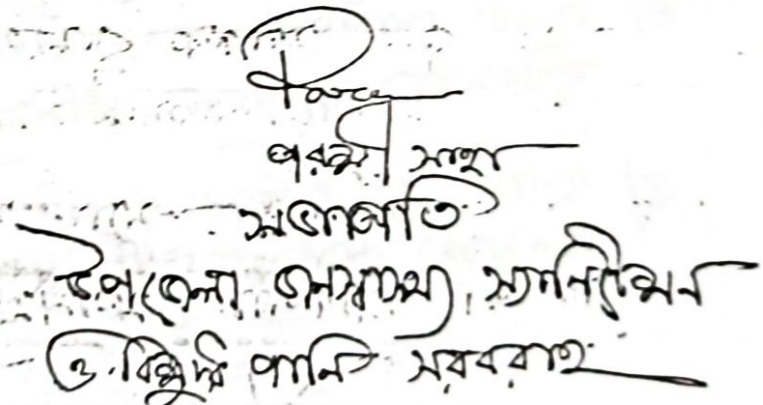 পরশী সাহা
সভাপতি
উপজেলা জনস্বাস্থ্য, স্যানিটেশন
ও বিশুদ্ধ পানি সরবরাহ